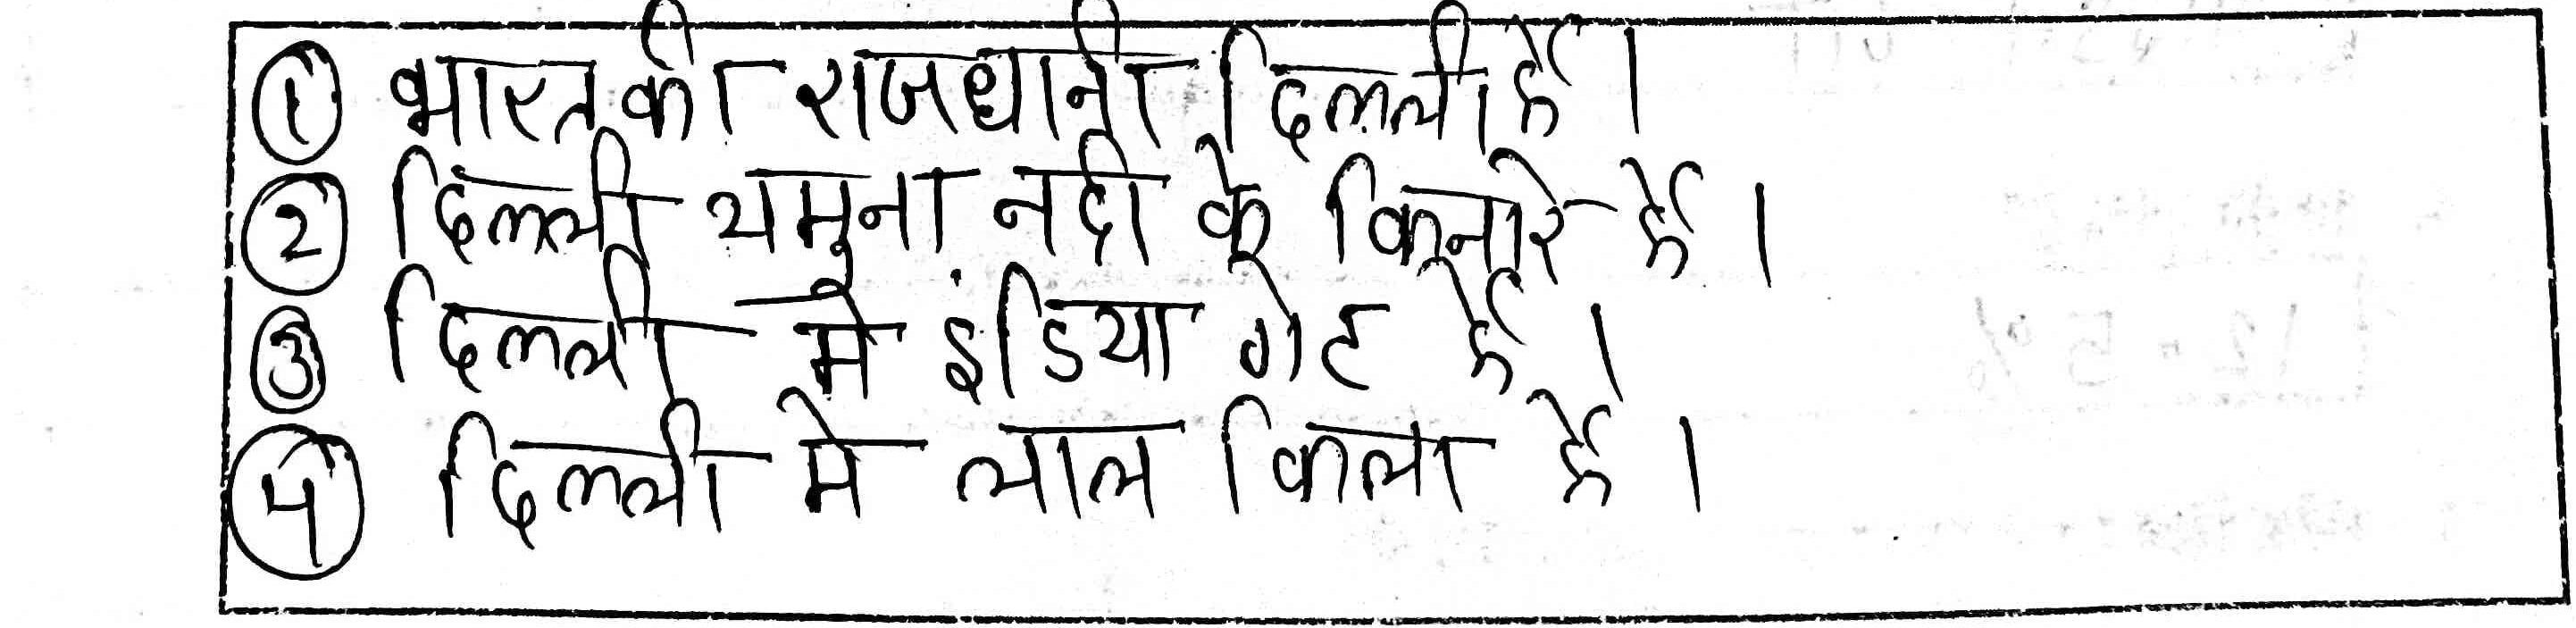 ① भारत की राजधानी दिल्ली है।
② दिल्ली यमुना नदी के किनारे है।
③ दिल्ली मे इंडिया गेट है।
④ दिल्ली मे लाल किला है।